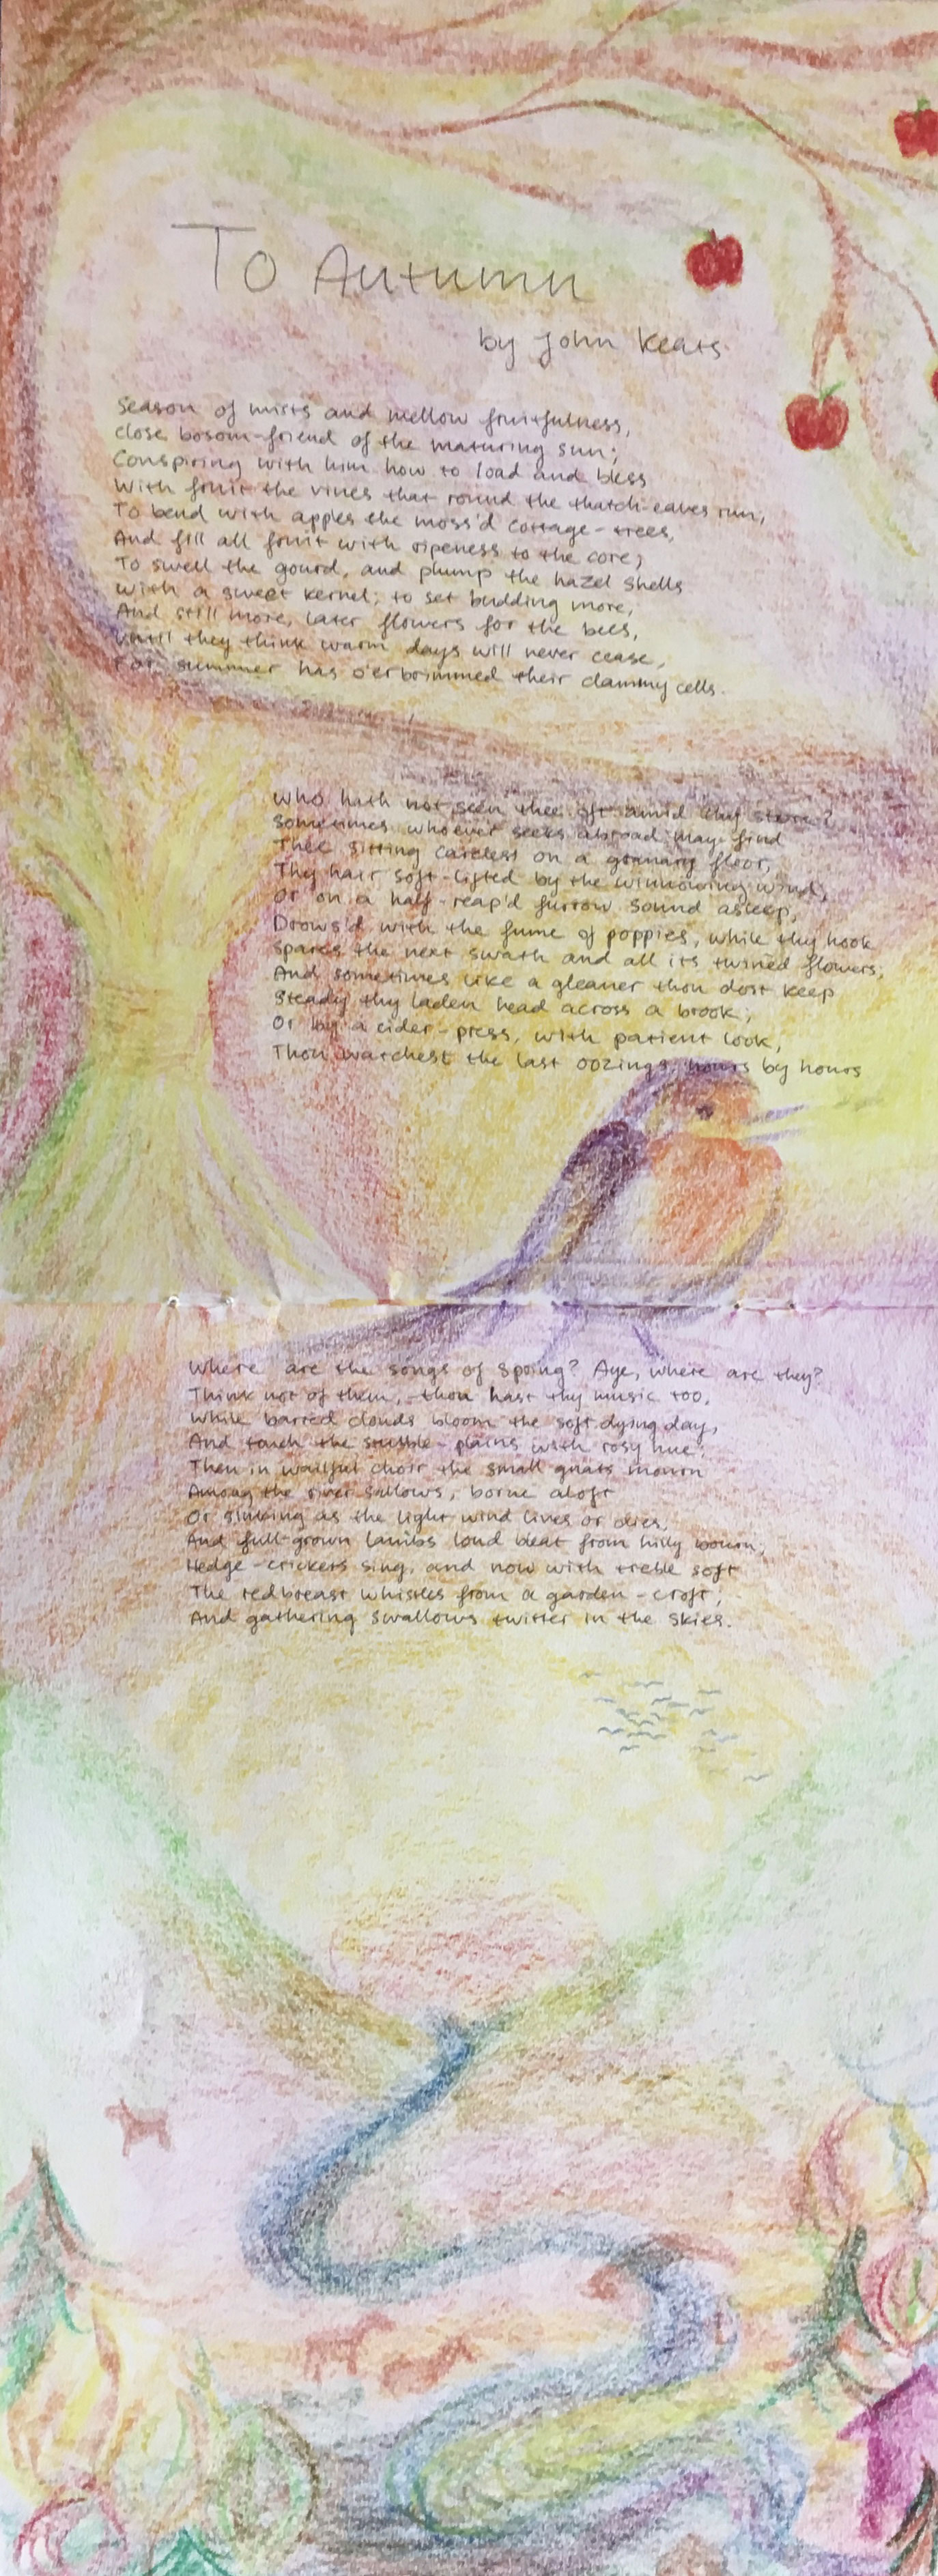 To Autumn
by John Keats
Season of mists and mellow fruitfulness,
Close bosom-friend of the maturing sun;
Conspiring with him how to load and bless
With fruit the vines that round the thatch-eaves run;
To bend with apples the moss'd cottage-trees,
And fill all fruit with ripeness to the core;
To swell the gourd, and plump the hazel shells
With a sweet kernel; to set budding more,
And still more, later flowers for the bees,
Until they think warm days will never cease,
For summer has o'erbrimmed their clammy cells.
Who hath not seen thee oft amid thy store?
Sometimes whoever seeks abroad may find
Thee sitting careless on a granary floor,
Thy hair soft-lifted by the winnowing wind;
Or on a half-reap'd furrow sound asleep,
Drows'd with the fume of poppies, while thy hook
Spares the next swath and all its twined flowers;
And sometimes like a gleaner thou dost keep
Steady thy laden head across a brook;
Or by a cider-press, with patient look,
Thou watchest the last oozings, hours by hours
Where are the songs of Spring? Aye, where are they?
Think not of them, thou hast thy music too,
While barred clouds bloom the soft-dying day,
And touch the stubble-plains with rosy hue;
Then in wailful choir the small gnats mourn
Among the river sallows, borne aloft
Or sinking as the light wind lives or dies,
And full-grown lambs loud bleat from hilly bourn;
Hedge-crickets sing, and now with treble soft
The redbreast whistles from a garden-croft;
And gathering swallows twitter in the skies.